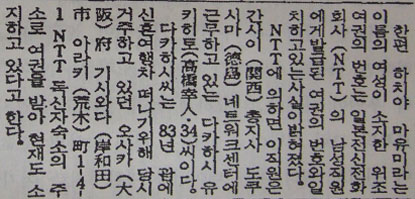 한편 하치야 마유미라는
이름의 여성이 소지한 위조
여권의 번호는 일본전신전화
회사 (NTT) 의 남성직원
에게발급된 여권의 번호와일
치하고있는사실이밝혀졌다.
NTT에 의하면 이직원은
간사이 (関西) 총지사 도쿠
시마 (徳島) 네트워크센터에
근무하고 있는 다카하시 유
키히토(高橋幸人·34)씨이다.
다카하시씨는 83년 괌에
신혼여행차 떠나기위해 당시
거주하고 있던 오사카 (大
阪) 府 기시와다 (岸和田)
市 아라키 (荒木) 町1-4-
1 NTT 독신자숙소의 주
소로 여권을 받아 현재도 소
지하고 있다고 한다.